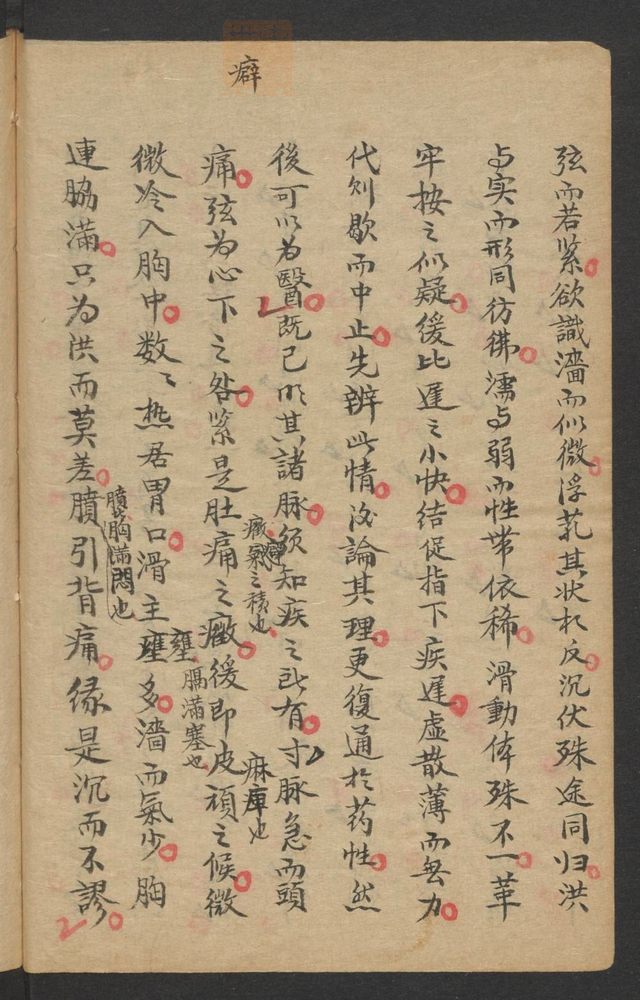 癖
弦而若紧欲識濇而似微浮芤其状相反沉伏殊途同归洪
与实而形同彷彿濡与弱而性带依稀滑動体殊不一革
牢按之似疑缓比遲之小快结促指下疾遲虚散薄而無力
代则歇而中止先辨此情次論其理更復通於药性然
後可以为醫既已明其諸脉须知疾之所有寸脉急而頭
痛弦为心下之咎紧是肚痛之癥缓即皮頑之候微
癥癖氣之積也
麻痺也
微冷入胸中数〻热居胃口滑主壅多濇而氣少胸
壅膈满塞也
連脇满只为洪而莫差膹引背痛缘是沉而不謬
膹胸满悶也